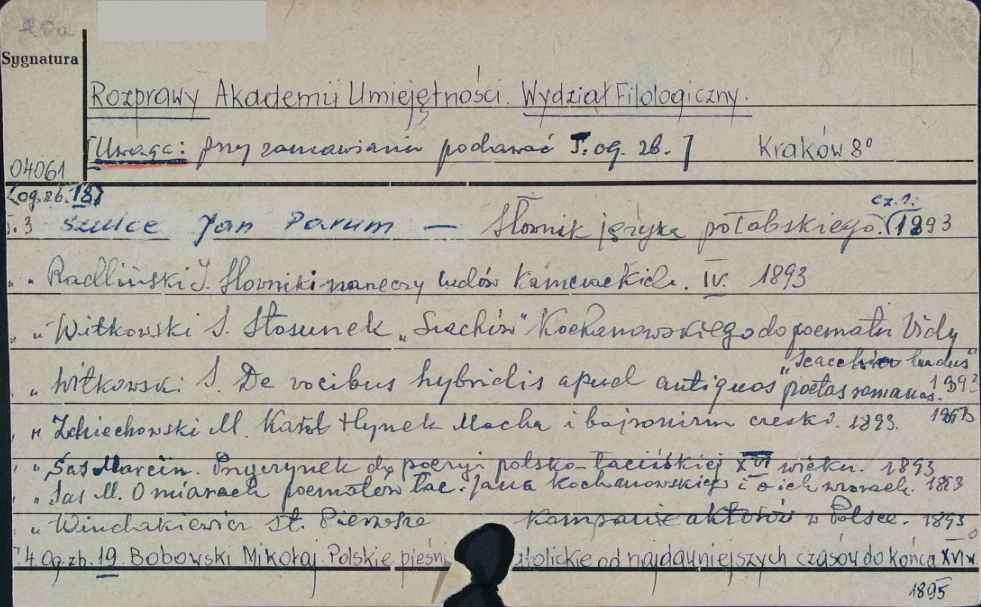 Sygnatura
Rozprawy Akademij Umiejętności. Wydział Filologiczny.
[Uwaga: przy zamawianiu podawać T. og. zb.] Kraków 8°
04061
[og. zb. 18]
cz. 1.
t. 3 Szulce Jan Parum — Słownik języka połabskiego. 1893
" " Radliński I. Słowniki narzeczy ludów kamczackich. IV. 1893
" " Witkowski S. Stosunek „Szachów" Kochanowskiego do poematu Vidy
"Scacchia ludus"
" Witkowski S. De vocibus hybridis apud antiquos poetas romanos. 1893
1893
" " Zdziechowski M. Karol Hynek Macha i bajronizm czeski. 1893.
" " Sas Marcin. Przyczynek do poezyi polsko-łacińskiej XVI wieku. 1893
" " Sas M. O miarach poematów łac. Jana Kochanowskiego i o ich wzorach. 1893
" " Windakiewicz St. Pierwsze kompanie aktorów w Polsce. 1893
T 4 Og. zb. 19 Bobowski Mikołaj Polskie pieśni katolickie od najdawniejszych czasów do końca XVI w.
1895